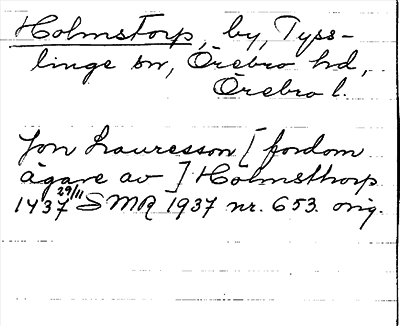 Holmstorp, by, Tyss-
linge sn, Örebro hd,
Örebro l.
Jon Lauresson [ fordom
ägare av ] Holmsthorp
1437 29/11 SMR 1937 nr. 653. orig.